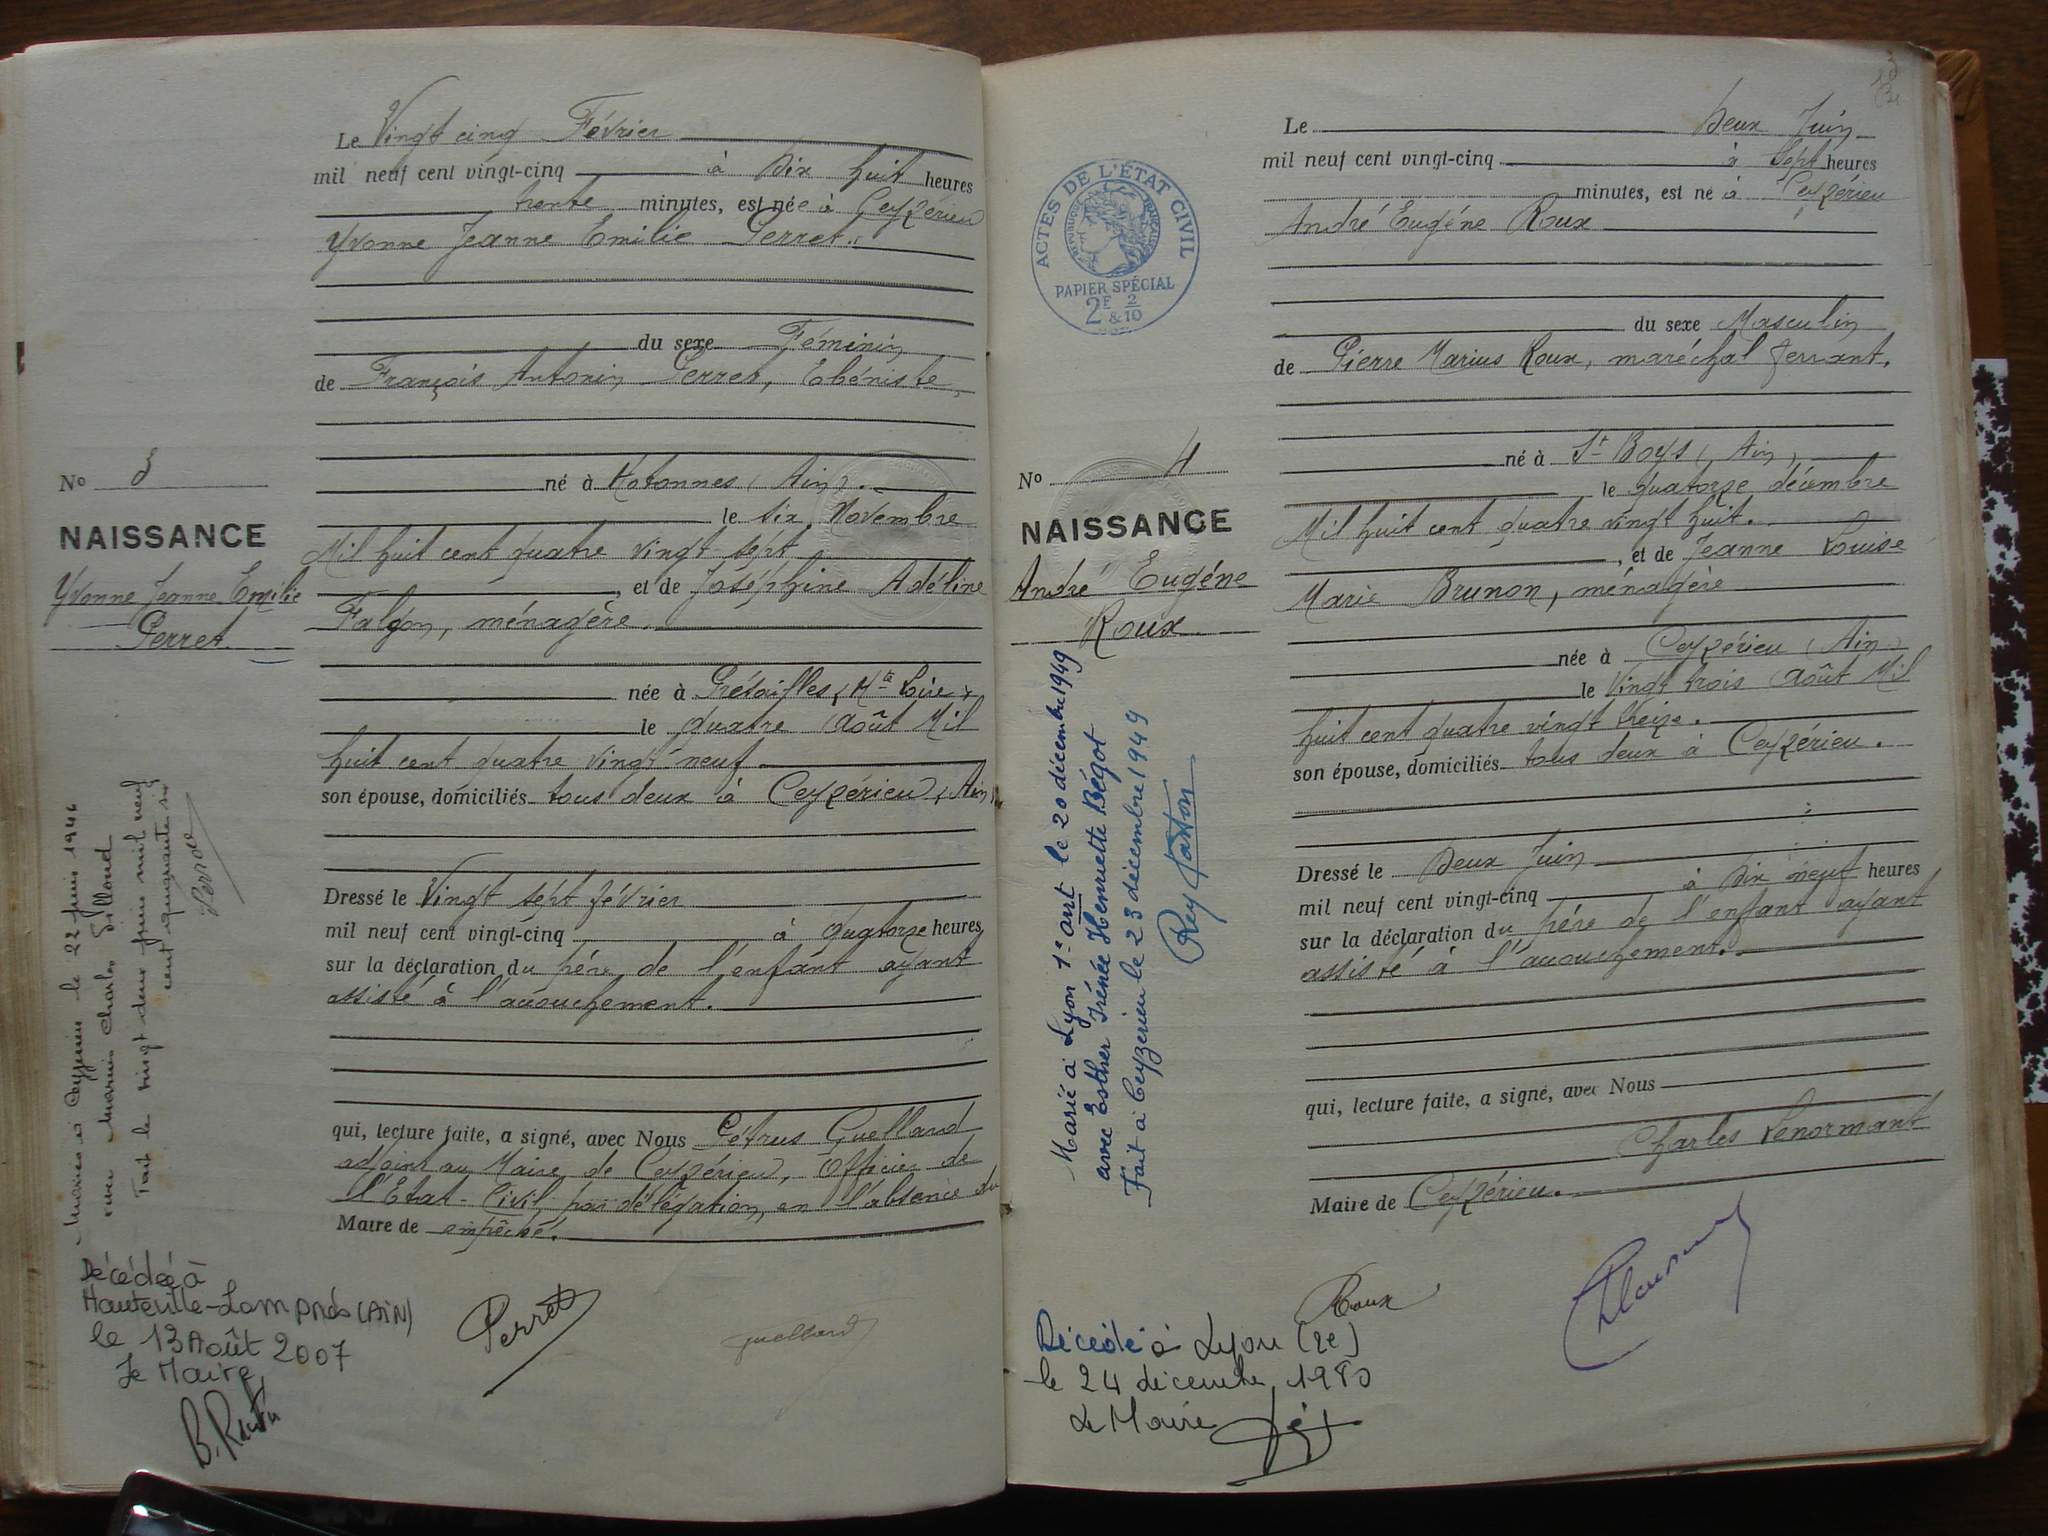 Le Vingt cinq Février
mil neuf cent vingt-cinq à Dix huit heures
trente minutes, est née à Ceyzérieu
Yvonne Jeanne Emilie Perret.
du sexe Féminin
de François Antonin Perret, Ebéniste,
né à Hotonnes (Ain).
le six Novembre
Mil huit cent quatre vingt sept
, et de Joséphine Adéline
Falcon, ménagère.
née à (Hte Loire)
le quatre Août Mil
huit cent quatre vingt neuf
son épouse, domiciliés tous deux à Ceyzérieu (Ain)
Dressé le Vingt sept février
mil neuf cent vingt-cinq à quatorze heures
sur la déclaration du père de l'enfant ayant
assisté à l'accouchement.
qui, lecture faite, a signé, avec Nous Pétrus Guelland
adjoint au Maire de Ceyzérieu, Officier de
l'Etat-Civil par délégation, en l'absence du
Maire de empêché.
Perret
Guelland
No 3
NAISSANCE
Yvonne Jeanne Emilie
Perret
Mariée à Ceyzérieu le 22 juin 1946
avec Marius Charles
Fait le vingt deux juin mil neuf
cent quarante six
Décédée à
Hauteville-Lompnes (AIN)
le 13 Août 2007
Le Maire
ACTES DE L'ÉTAT CIVIL
RÉPUBLIQUE FRANÇAISE
PAPIER SPÉCIAL
2F & 2/10
No 4
NAISSANCE
André Eugéne
Roux
Marié à Lyon 1er art le 20 décembre 1949
avec Esther Irénée Henriette Bégot
Fait à Ceyzérieu le 23 décembre 1949
Décédé à Lyon (2e)
le 24 décembre 1980
Le Maire
3
Le Deux Juin
mil neuf cent vingt-cinq à Sept heures
minutes, est né à Ceyzérieu
André Eugéne Roux
du sexe Masculin
de Pierre Marius Roux, maréchal ferrant.
né à St Boys (Ain),
le quatorze décembre
Mil huit cent quatre vingt huit.
, et de Jeanne Louise
Marie Brunon, ménagère
née à Ceyzérieu (Ain)
le Vingt trois Août Mil
huit cent quatre vingt treize.
son épouse, domiciliés tous deux à Ceyzérieu.
Dressé le Deux Juin
mil neuf cent vingt-cinq à Dix neuf heures
sur la déclaration du père de l'enfant ayant
assisté à l'accouchement.
qui, lecture faite, a signé, avec Nous
Charles Lenormant
Maire de Ceyzérieu.
Roux